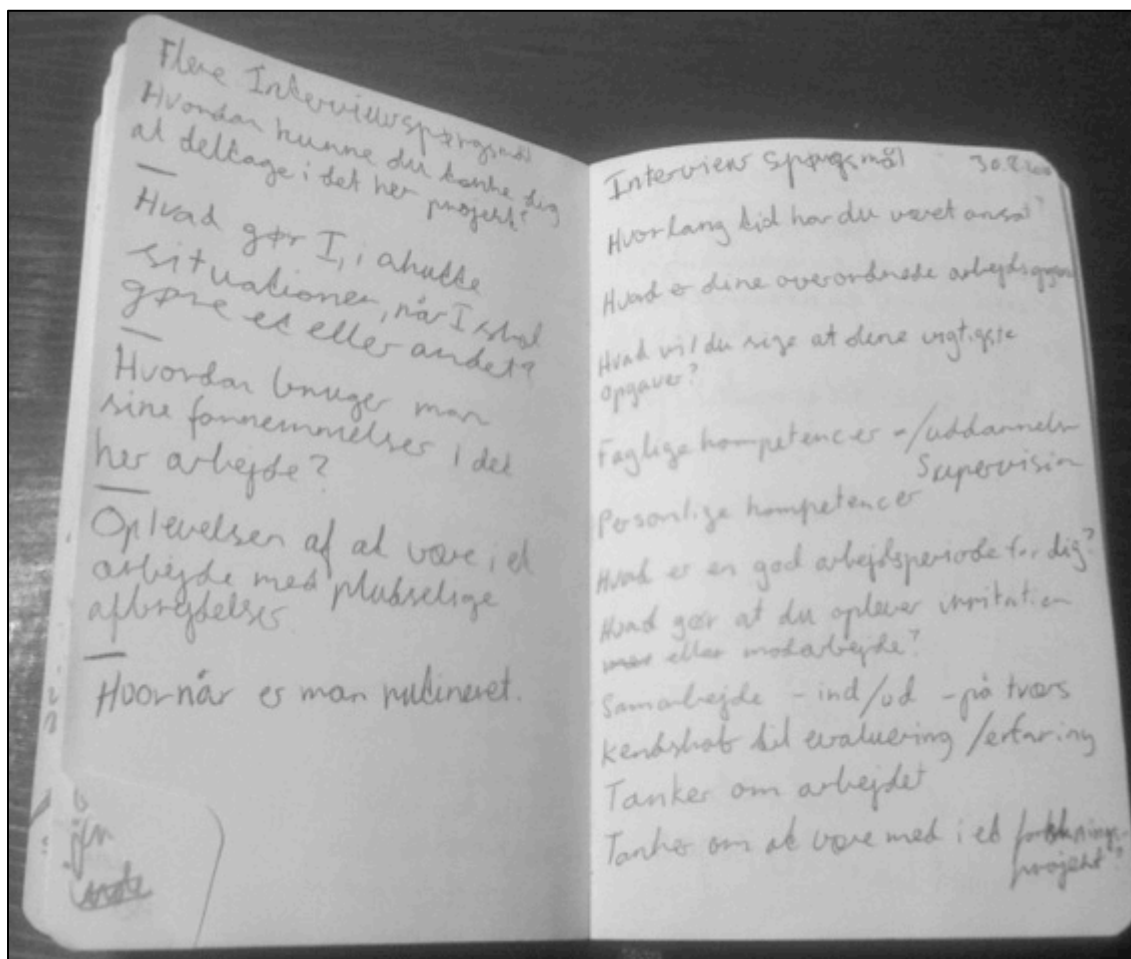 Flere Interviewspørgsmål
Hvordan kunne du tænke dig
at deltage i det her projekt?
Hvad gør I, i akutte
situationer, når I skal
gøre et eller andet?
Hvordan bruger man
sine fornemmelser i det
her arbejde?
Oplevelsen af at være i et
arbejde med pludselige
afbrydelser
Hvornår er man rutineret.
Interview spørgsmål
Hvor lang tid har du været ansat?
Hvad er dine overordnede
Hvad vil du sige at dine vigtigste
opgaver?
Faglige kompetencer -/uddannelse
Supervision
Personlige kompetencer
Hvad er en god arbejdsperiode for dig?
Hvad gør at du oplever irritation
eller modarbejde?
Samarbejde - ind/ud - på tværs
Kendskab til evaluering /erfaring
Tanker om arbejdet
Tanker om at være med i et forsknings
projekt?